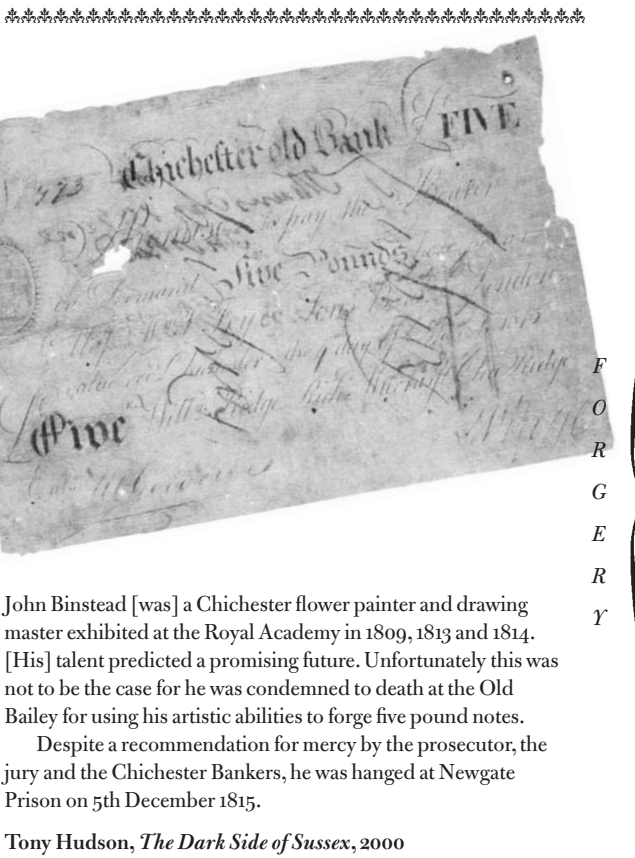 FIVE
Chichester old Bank
pay the Bearer
Demand Five Pounds
London
the 9 day of
Five
F
O
R
G
E
R
Y
John Binstead [was] a Chichester flower painter and drawing
master exhibited at the Royal Academy in 1809, 1813 and 1814.
[His] talent predicted a promising future. Unfortunately this was
not to be the case for he was condemned to death at the Old
Bailey for using his artistic abilities to forge five pound notes.
Despite a recommendation for mercy by the prosecutor, the
jury and the Chichester Bankers, he was hanged at Newgate
Prison on 5th December 1815.
Tony Hudson, The Dark Side of Sussex, 2000